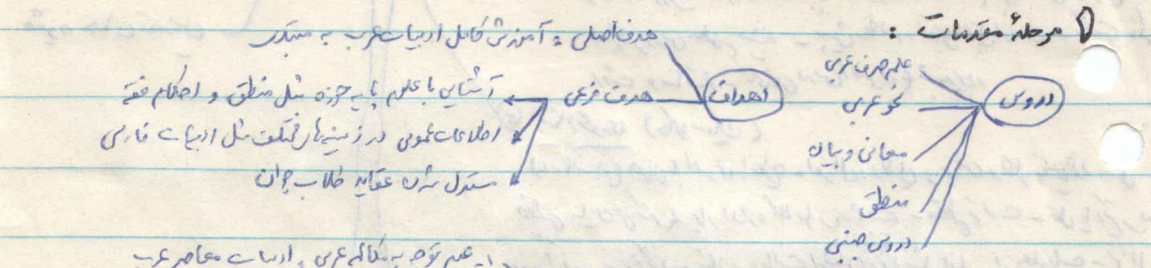 ① مرحلهٔ مقدمات :
دروس
علم صرف عربی
نحو عربی
معانی و بیان
منطق
دروس جنبی
اهداف
هدف اصلی : آموزش کامل ادبیات عرب به مبتدی
هدف فرعی
آشنایی با علوم پایه حوزه مثل منطق و احکام فقه
اطلاعات عمومی در زمینه‌های مختلف مثل ادبیات فارسی
مستدل شدن عقاید طلاب جوان
۱- عدم توجه به مکالمه عربی و ادبیات معاصر عرب